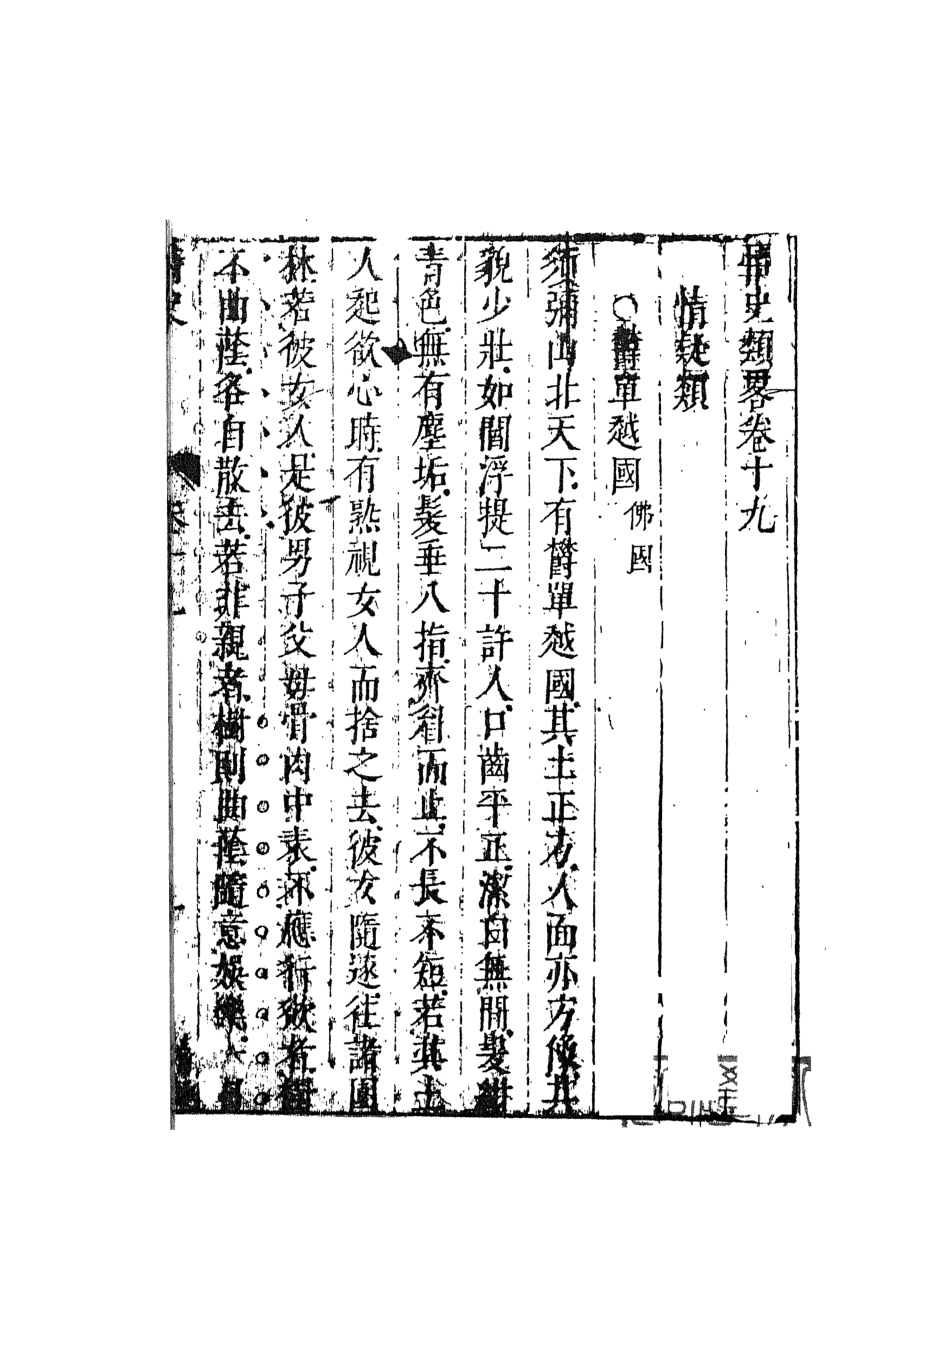 情史類畧卷十九
情疑類
○鬱單越國 佛國
須彌山北天下有鬱單越國其土正方人面亦方像其
貌少壯如閻浮提二十許人口齒平正潔白無間髮紺
青色無有塵垢髮垂八指齊眉而止不長不短若其土
人起欲心時有熟視女人而捨之去彼女隨逐往諸園
林若彼女人是彼男子父母骨肉中表不應行欲者樹
不曲蔭各自散去若非親者樹則曲蔭隨意娛樂
情史 卷十九 一